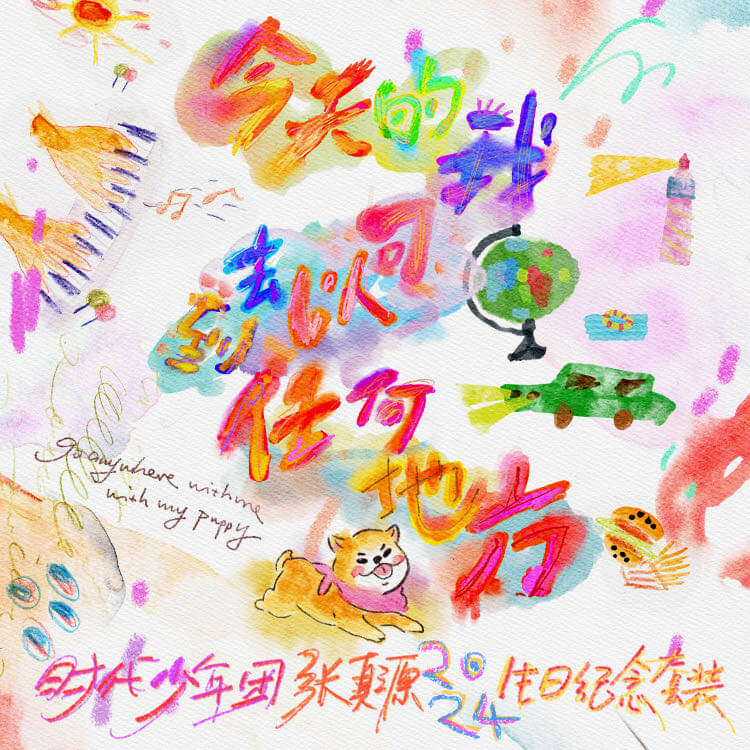 今天的我
可以去到
任何
地方
go anywhere with me
with my puppy
时代少年团张真源2024生日纪念套装